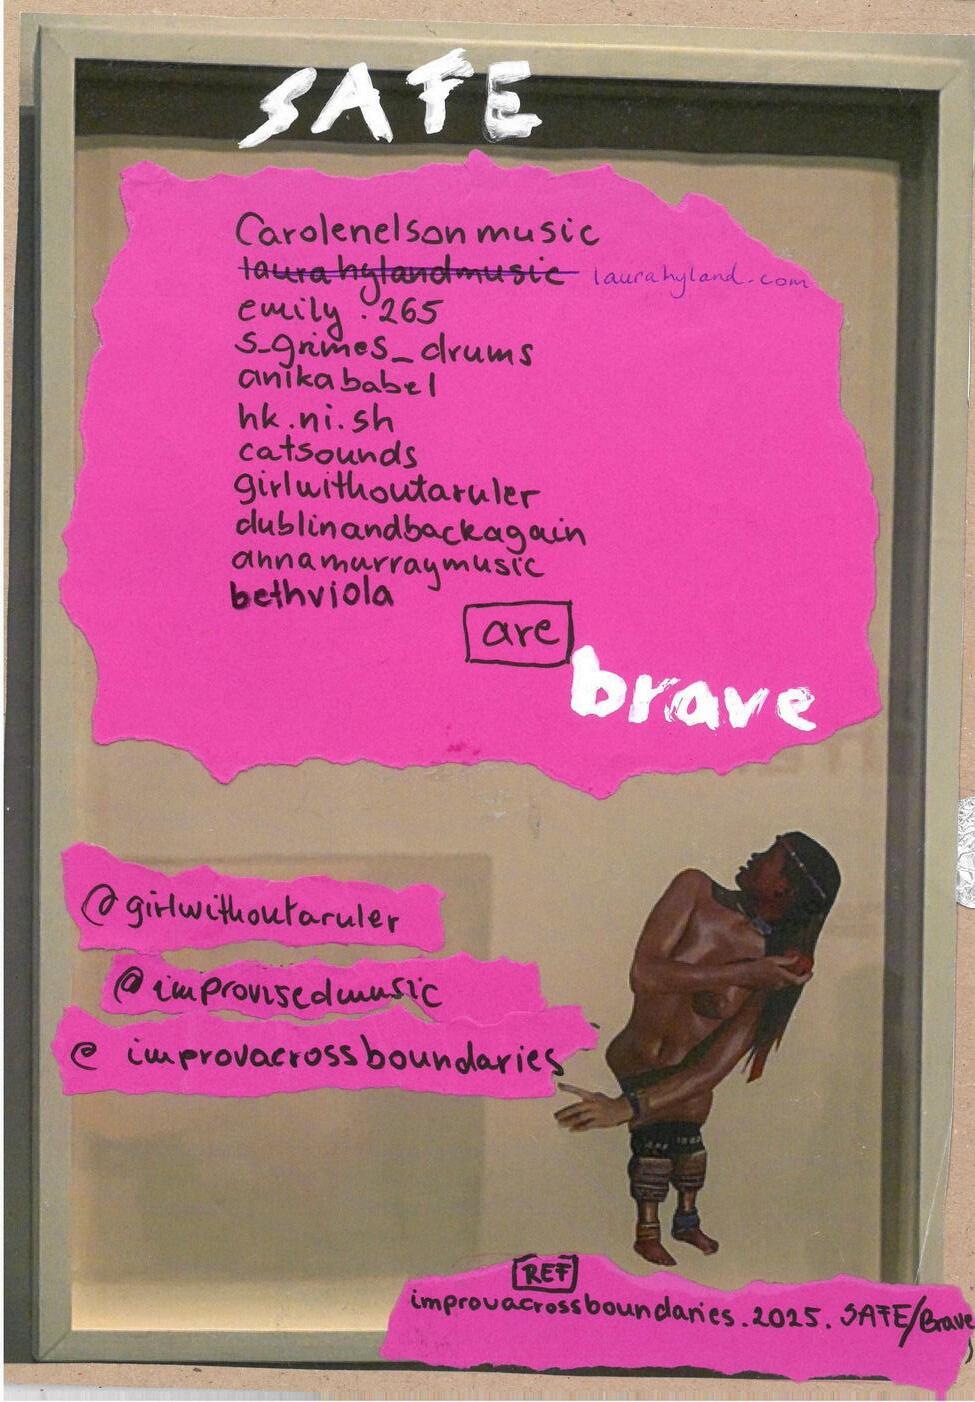 SAFE
Carolenelsonmusic
laurahylandmusic laurahyland.com
emily.265
s_grimes_drums
anikababel
hk.ni.sh
catsounds
girlwithoutaruler
dublinandbackagain
annamurraymusic
bethviola
are
brave
@girlwithoutaruler
@improvisedmusic
@improvacrossboundaries
REF
improvacrossboundaries.2025. SAFE/Brave